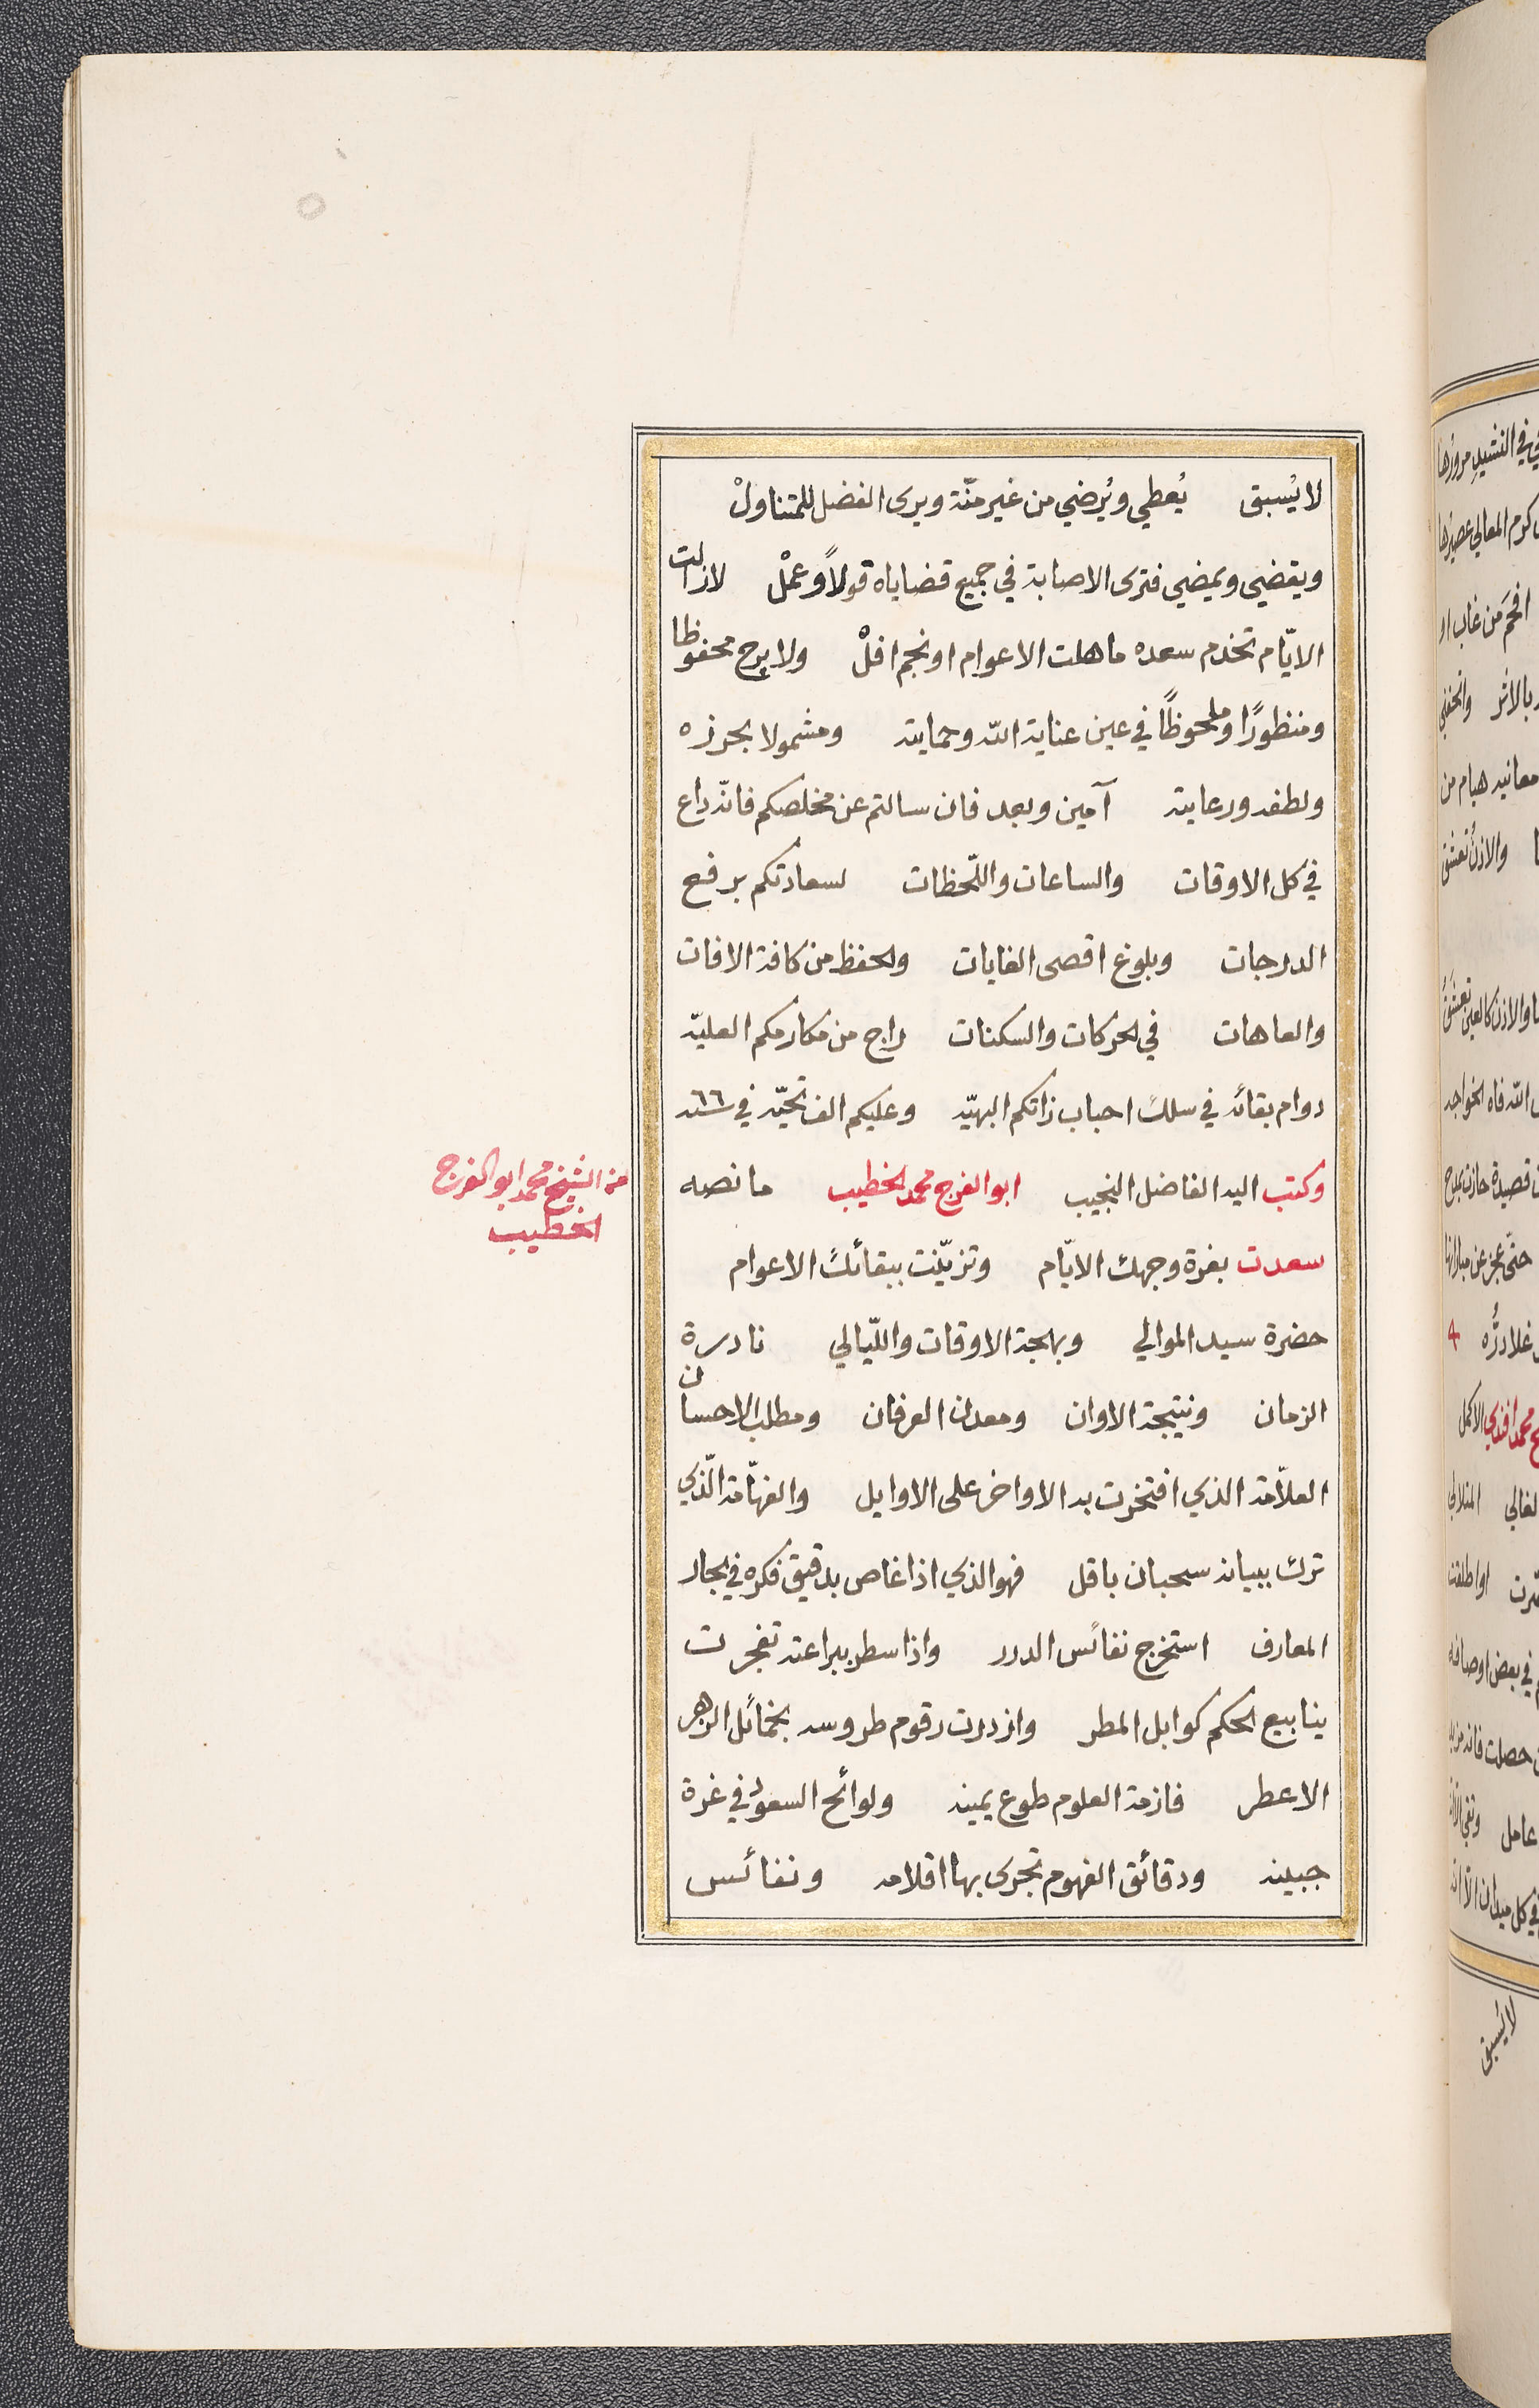 لا يُسبق يُعطي ويُرضي من غير منّة ويرى الفضل للمتناولْ
ويقضي ويمضي فترى الاصابة في جميع قضاياه قولاً وعملْ لازالت
الايّام تخدم سعده ما هلت الاعوام او نجم افلْ ولا برح محفوظا
ومنظورًا وملحوظًا في عين عناية الله وحمايته ومشمولا بحرزه
ولطفه ورعايته آمين وبعد فان سالتم عن مخلصكم فانّه داع
في كل الاوقات والساعات واللّحظات لسعادتكم برفع
الدرجات وبلوغ اقصى الغايات والحفظ من كافة الافات
والعاهات في الحركات والسكنات راج من مكارمكم العليّه
دوام بقائه في سلك احباب ذاتكم البهيّه وعليكم الف تحيّه في ٦٦ سنه
وكتب اليه الفاضل النجيب ابو الفرج محمد الخطيب ما نصه
سعدت بغرة وجهك الايّام وتزيّنت ببقائك الاعوام
حضرة سيد الموالي وبهجة الاوقات واللّيالي نادرة
الزمان ونتيجة الاوان ومعدن العرفان ومطلب الاحسان
العلاّمة الذي افتخرت به الاواخر على الاوايل والفهّامة الّذي
ترك ببيانه سحبان باقل فهو الذي اذا غاص بدقيق فكره في بحار
المعارف استخرج نفائس الدرر واذا سطر ببراعته تفجرت
ينابيع الحكم كوابل المطر وازدرت رقوم طروسه بخمائل الزهر
الاعطر فازمة العلوم طوع يمينه ولوائح السعود في غرة
جبينه ودقائق الفهوم تجري بها اقلامه ونفائس
من الشيخ محمد ابو الفرج
الخطيب
لا يُسبق